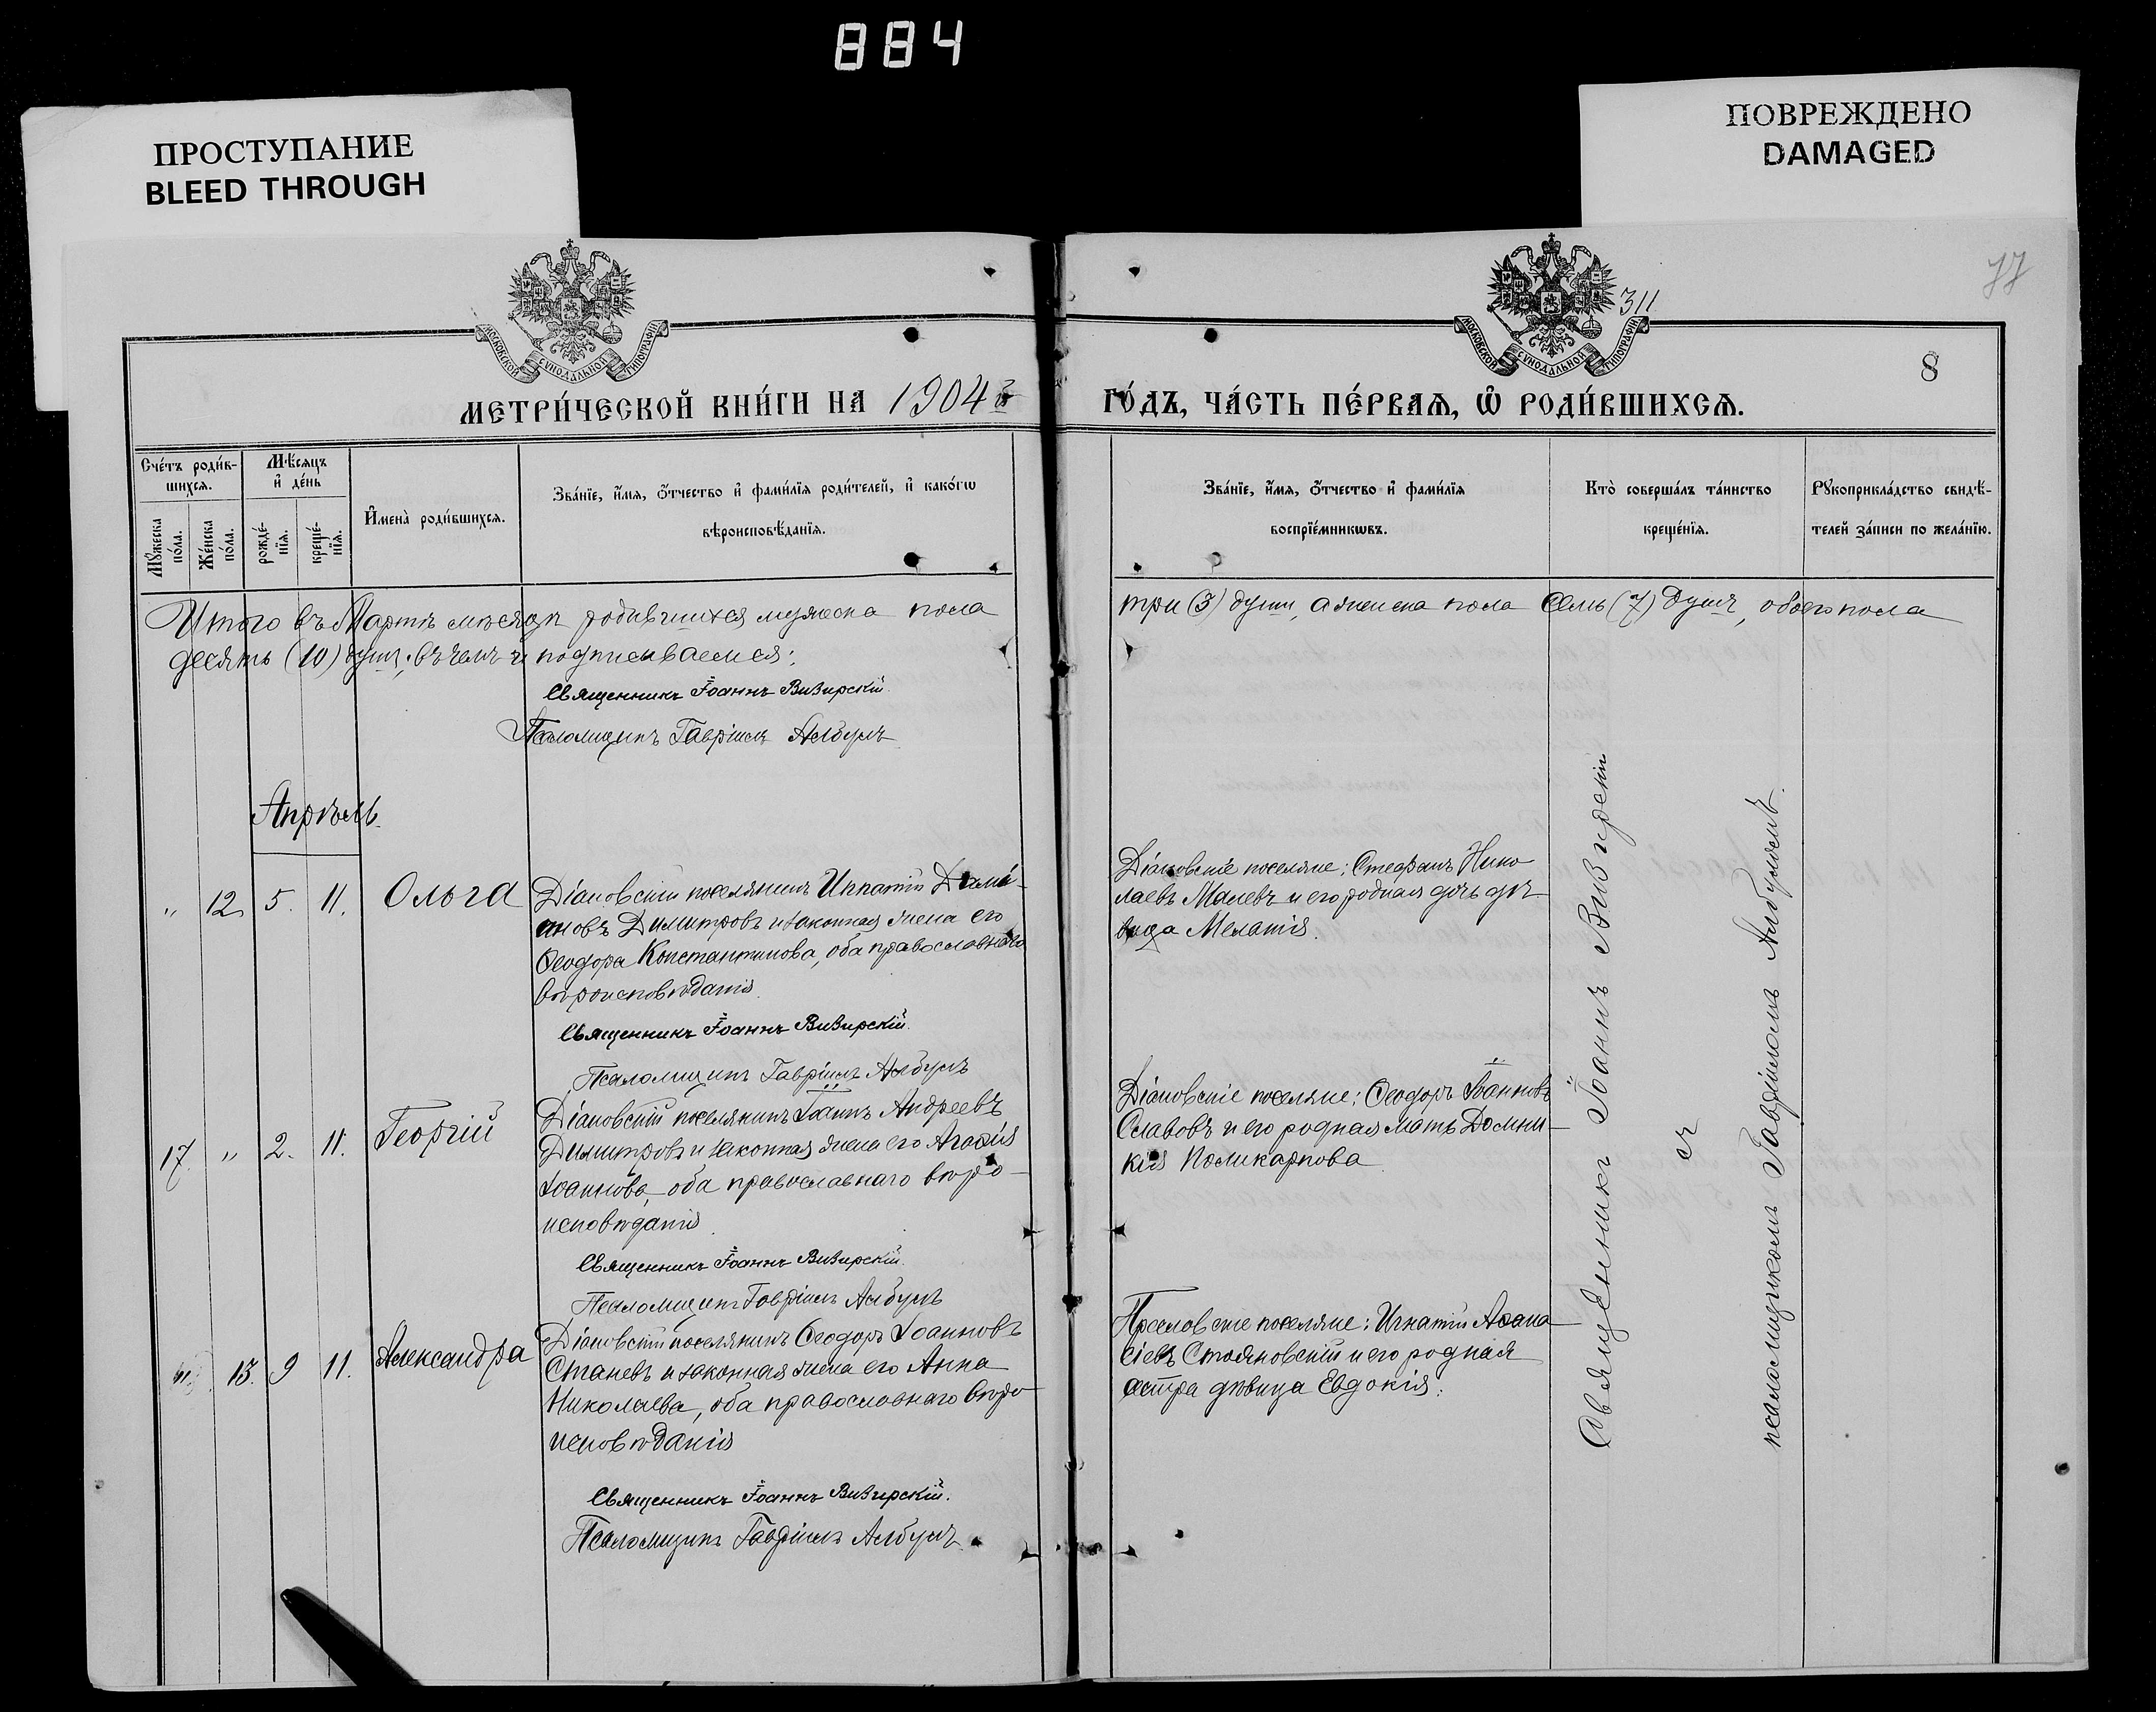 884
ПРОСТУПАНИЕ
BLEED THROUGH
ПОВРЕЖДЕНО
DAMAGED
77
311
8
МОСКОВСКОЙ СѴНОДАЛЬНОЙ ТИПОГРАФІИ
МОСКОВСКОЙ СѴНОДАЛЬНОЙ ТИПОГРАФІИ
МЕТРИ́ЧЕСКОЙ КНИ́ГИ НА 1904 г̃
ГО́ДЪ, ЧА́СТЬ ПЕ́РВАѦ, Ѽ РОДИ́ВШИХСѦ.
Сче́тъ роди́в-
шихсѧ.
Мꙋ́жеска
по́ла.
Же́нска
по́ла.
Мѣ́сѧцъ
и҆ де́нь
рожде́-
нїѧ.
креще́-
нїѧ.
И҆мена̀ роди́вшихсѧ.
Зва́нїе, и҆́мѧ, ѻ҆́тчество и҆ фами́лїѧ роди́телей, и҆ како́гѡ
вѣроисповѣ́данїѧ.
Зва́нїе, и҆́мѧ, ѻ҆́тчество и҆ фами́лїѧ
воспрїе́мникѡвъ.
Кто̀ соверша́лъ та́инство
креще́нїѧ.
Рꙋкоприкла́дство свидѣ́-
телей за́писи по жела́нїю.
Итого въ Мартѣ мѣсяцѣ родившихся мужеска пола
три (3) души, а женска пола семь (7) душъ, обоего пола
десять (10) душъ, въ чемъ и подписываемся:
Священникъ Іоаннъ Визирскій.
Псаломщикъ Гавріилъ Албулъ
Апрѣль.
" 12. 5. 11. Ольга
Діановскій поселянинъ Игнатій Дамі-
ановъ Димитровъ и законная жена его
Ѳеодора Константинова, оба православнаго
вѣроисповѣданія.
Священникъ Іоаннъ Визирскій.
Псаломщикъ Гавріилъ Албулъ
Діановскіе поселяне: Стефанъ Нико
лаевъ Малевъ и его родная дочь дѣ-
вица Мелатія.
17. " 2. 11. Георгій
Діановскій поселянинъ Іоаннъ Андреевъ
Димитровъ и законная жена его Агафія
Іоаннова, оба православнаго вѣро-
исповѣданія.
Священникъ Іоаннъ Визирскій.
Псаломщикъ Гавріилъ Албулъ
Діановскіе поселяне: Ѳеодоръ Іоанновъ
Славовъ и его родная мать Домни-
кія Поликарпова.
" 13. 9 11. Александра
Діановскій поселянинъ Ѳеодоръ Іоанновъ
Станевъ и законная жена его Анна
Николаева, оба православнаго вѣро
исповѣданія
Священникъ Іоаннъ Визирскій.
Псаломщикъ Гавріилъ Албулъ.
Преславскіе поселяне: Игнатій Аѳана-
сіевъ Стояновскій и его родная
сестра дѣвица Евдокія.
Священникъ Іоаннъ Визирскій
съ
псаломщикомъ Гавріиломъ Албуломъ.